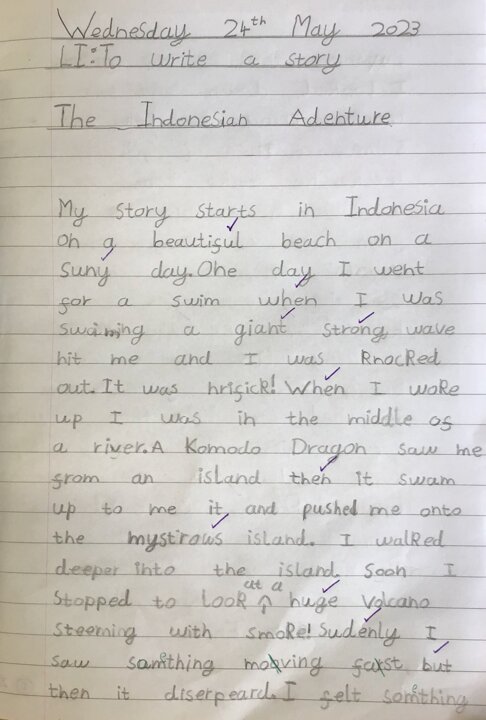 Wednesday 24th May 2023
LI: To write a story
The Indonesian Adenture
My story starts in Indonesia
on a beautiful beach on a
suny day. One day I went
for a swim when I was
swaiming a giant strong wave
hit me and I was knocked
out. It was hrifick! When I woke
up I was in the middle of
a river. A Komodo Dragon saw me
from an island then it swam
up to me it, and pushed me onto
the mystirous island. I walked
deeper into the island. Soon I
stopped to look at a huge Volcano
steeming with smoke! Sudenly I
saw something moving fast but
then it diserpeard. I felt somthing